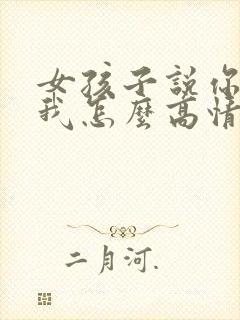 女孩子說你
我怎麼高情
二月河.